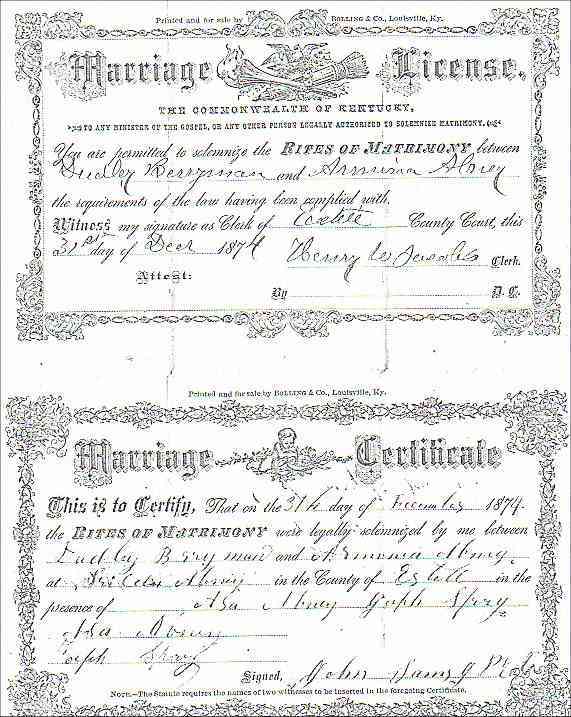 Printed and for sale by BOLLING & Co., Louisville, Ky.
Marriage License.
THE COMMONWEALTH OF KENTUCKY,
TO ANY MINISTER OF THE GOSPEL, OR ANY OTHER PERSON LEGALLY AUTHORISED TO SOLEMNIZE MATRIMONY.
You are permitted to solemnize the RITES OF MATRIMONY between
Dudley Berryman and Armina Abney
the requirements of the law having been complied with.
Witness my signature as Clerk of County Court, this
31st day of Decr 1874 Henry Clerk.
Attest:
By D. C.
Printed and for sale by BOLLING & Co., Louisville, Ky.
Marriage Certificate
This is to Certify, That on the 31st day of December 1874
the RITES OF MATRIMONY were legally solemnized by me between
Dudley Berryman and Abney
at Abney in the County of Estill in the
presence of Asa Abney
Asa Abney
Signed, John
NOTE.—The Statute requires the names of two witnesses to be inserted in the foregoing Certificate.